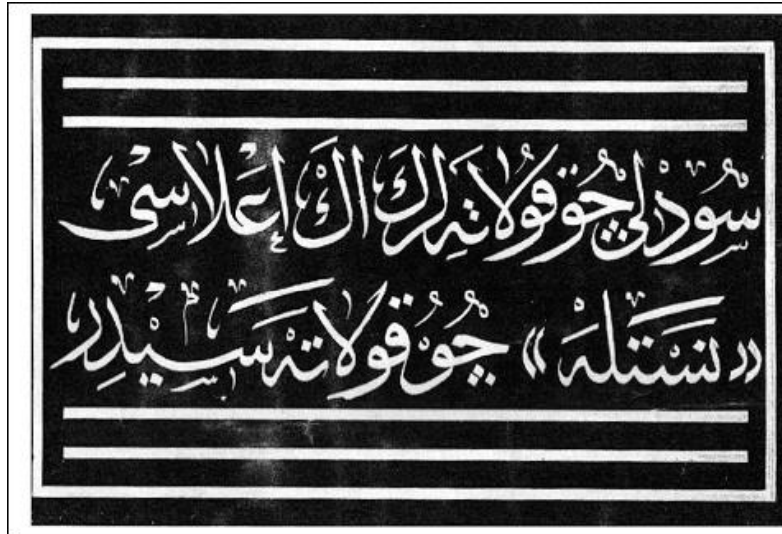 سودلی چوقولاته‌لرك اڭ اعلاسی
«نستله» چوقولاته‌سیدر